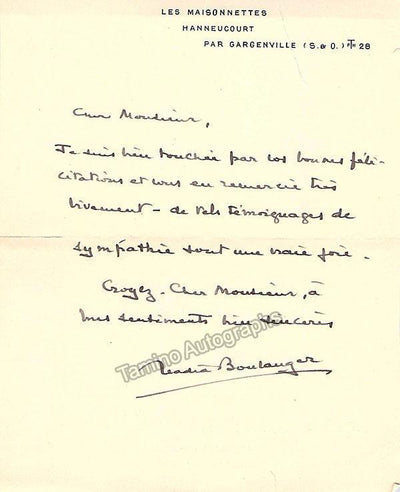 LES MAISONNETTES
HANNEUCOURT
PAR GARGENVILLE (S. & O.) T 28
Cher Monsieur,
Je suis bien touchée par vos bonnes féli-
citations et vous en remercie très
vivement - de tels témoignages de
sympathie sont une vraie joie.
Croyez - Cher Monsieur, à
mes sentiments bien sincères
Nadia Boulanger
Tamino Autographs